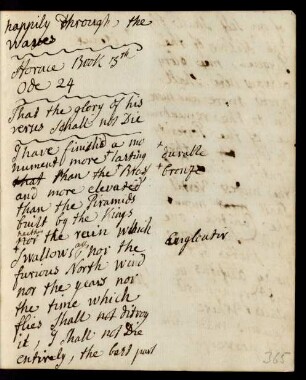 happily through, the
Waves
Horace Book 13th
Ode 24
That the glory of his
verses Schall not Die
I have finish'd a mo
nument more + lasting
that than the Bras +
and more elevated
than the Piramids
built by the Kings
neither
nor the rain which
Swallows all, nor the
furious North wind
nor the years nor
the time which
flies Shall not ditroy
it, I Shall not Die
entirely, the best part
+ durable
+ bronze
Engloutir
365